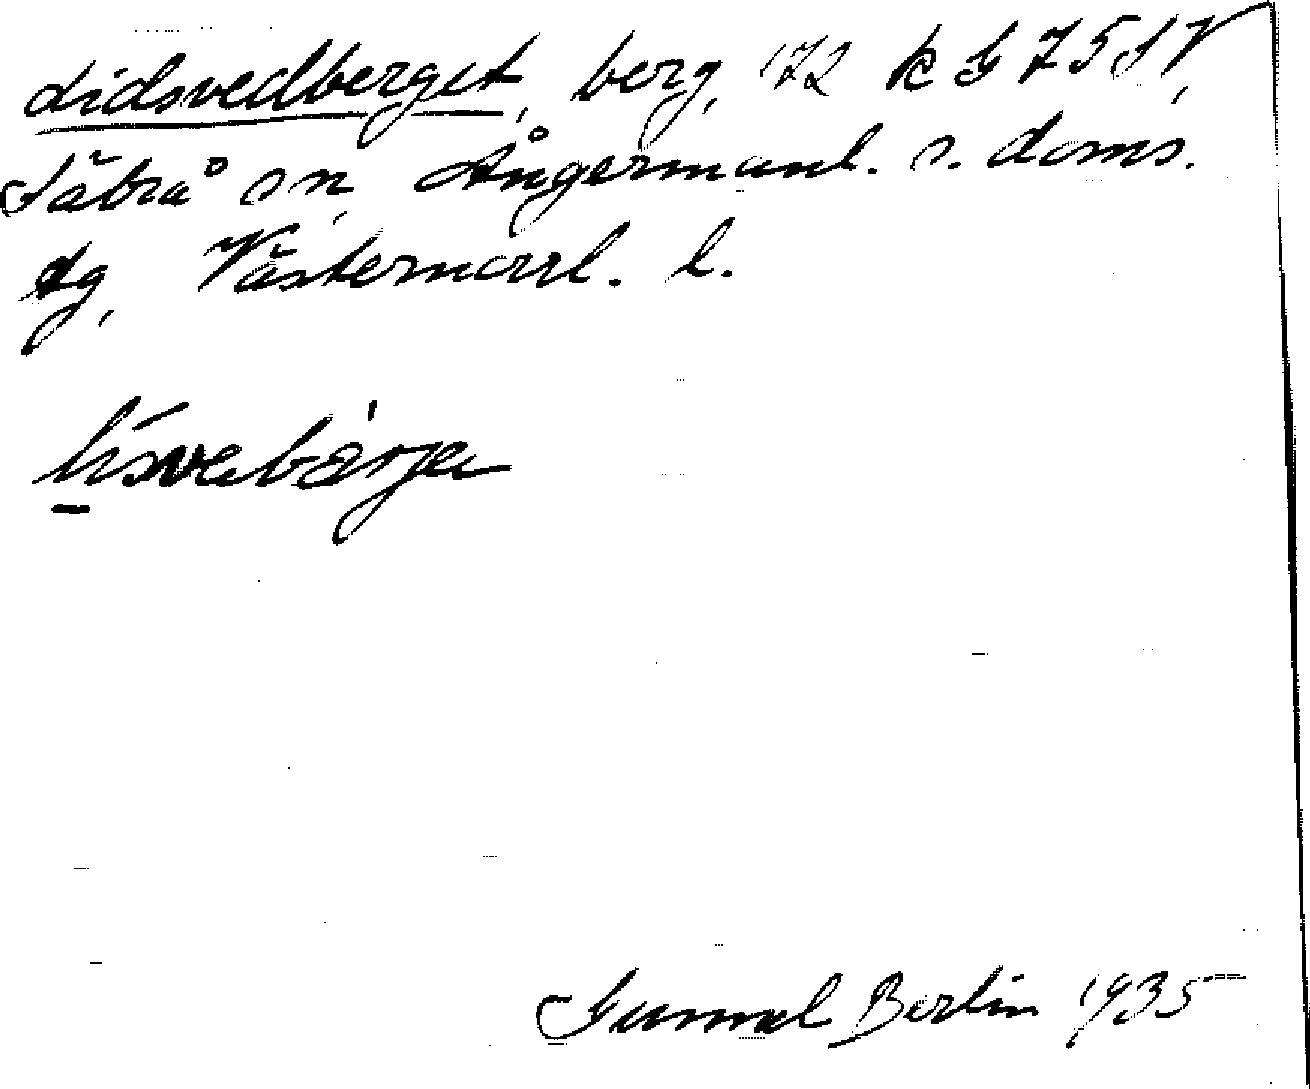 Lidsvedberget, berg, 172 k G 7 5 SV,
Säbrå sn, Ångermanl. s. doms.
tg, Västernorrl. l.
lisvebärja
Gunnel Berlin 1935